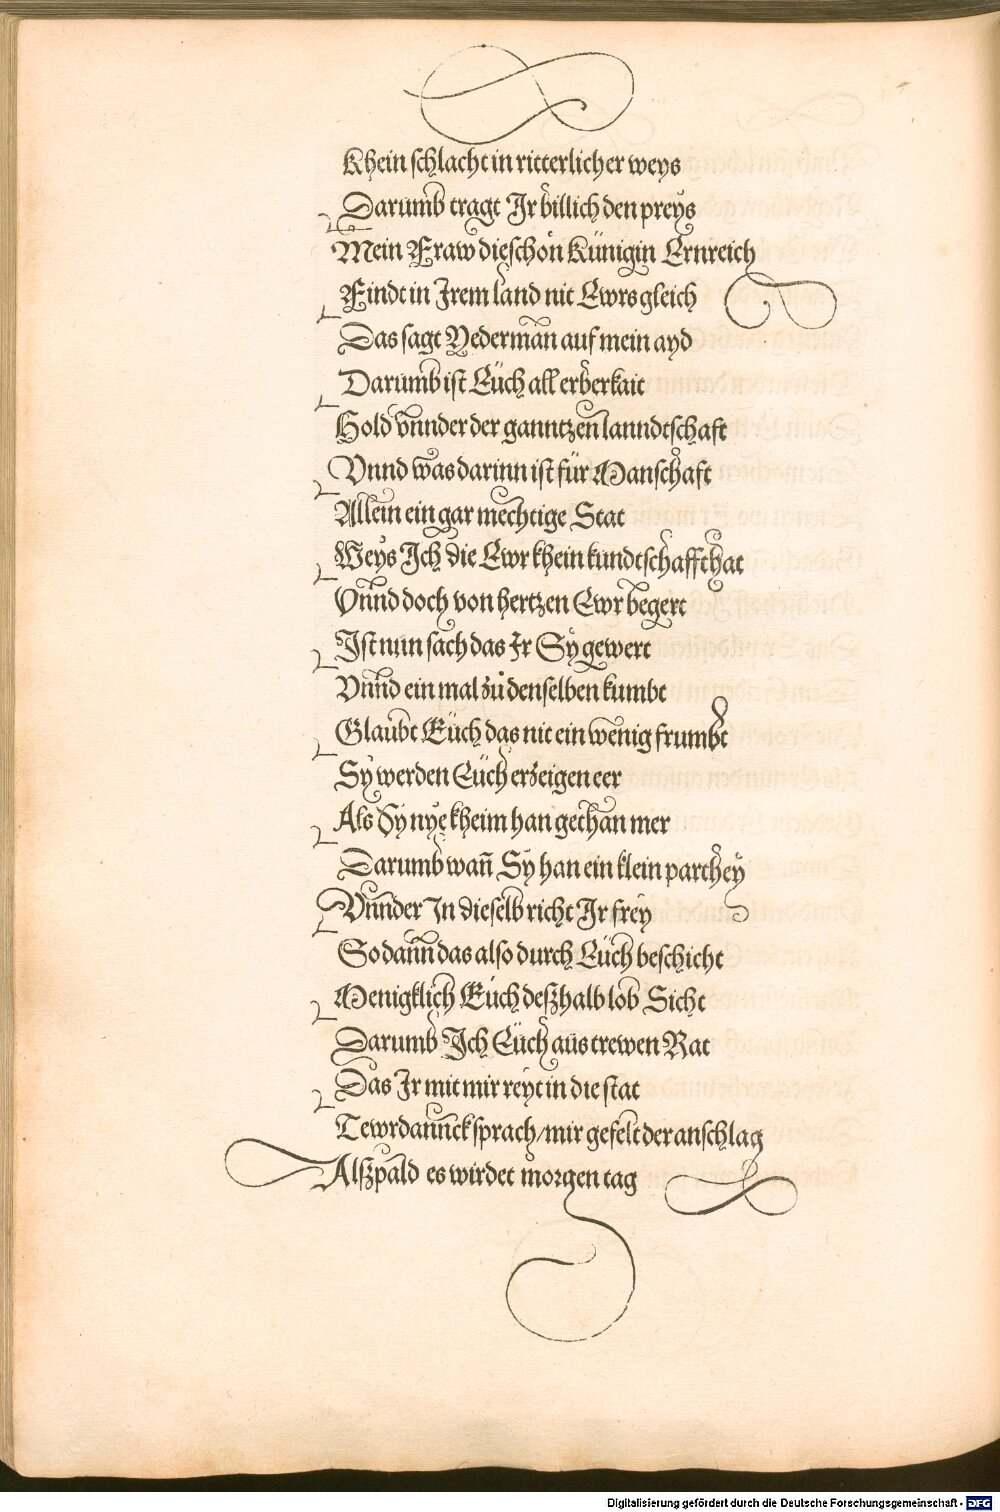 Khein schlacht in ritterlicher weys
Darumb tragt Ir billich den preys
Mein Fraw die schön Künigin Ernreich
Findt in Irem land nit Ewrs gleich
Das sagt Yederman auf mein ayd
Darumb ist Eüch all erberkait
Hold vnnder der ganntzen lanndtschaft
Vnnd was darinn ist für Manschaft
Allein ein gar mechtige Stat
Weys Ich die Ewr khein kundtschafft hat
Vnnd doch von hertzen Ewr begert
Ist nun sach das Ir Sy gewert
Vnnd ein mal zu denselben kumbt
Glaubt Eüch das nit ein wenig frumbt
Sy werden Eüch erzeigen eer
Als Sy nye kheim han gethan mer
Darumb wañ Sy han ein klein parthey
Vnnder In dieselb richt Ir frey
So dann das also durch Eüch beschicht
Menigklich Eüch deßhalb lob Sicht
Darumb Ich Eüch aus trewen Rat
Das Ir mit mir reyt in die stat
Tewrdannck sprach/mir gefelt der anschlag
Alßpald es wirdet morgen tag
Digitalisierung gefördert durch die Deutsche Forschungsgemeinschaft - DFG